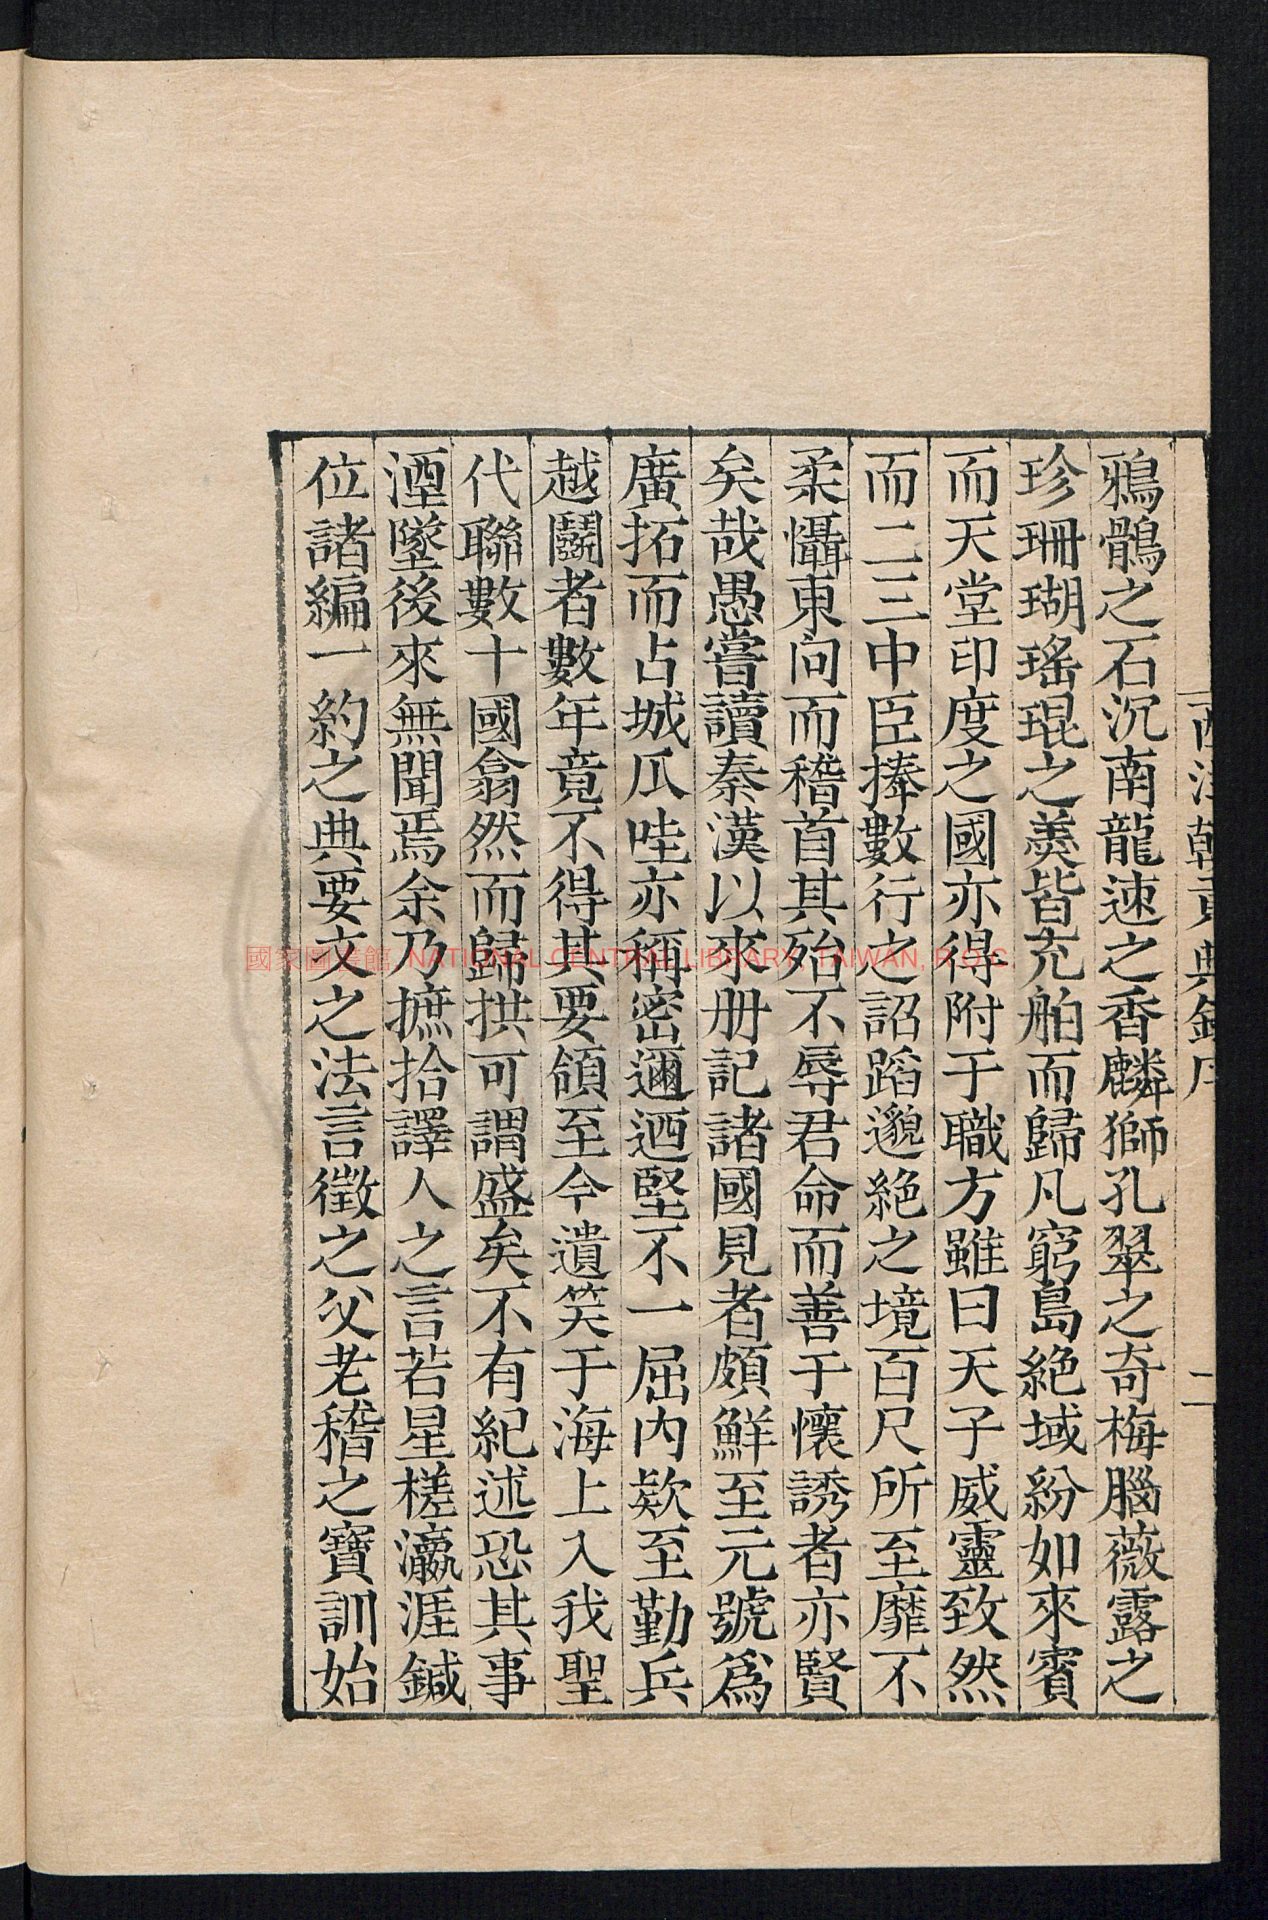 西洋朝貢典錄序 二
鴉鶻之石沉南龍速之香麟獅孔翠之奇梅腦薇露之
珍珊瑚瑤琨之美皆充舶而歸凡窮島絶域紛如來賓
而天堂印度之國亦得附于職方雖曰天子威靈致然
而二三中臣捧數行之詔蹈邈絶之境百尺所至靡不
柔懾東向而稽首其殆不辱君命而善于懷誘者亦賢
矣哉愚嘗讀秦漢以來册記諸國見者頗鮮至元號爲
廣拓而占城瓜哇亦稱密邇迺堅不一屈内欵至勤兵
越鬭者數年竟不得其要領至今遺笑于海上入我聖
代聯數十國翕然而歸拱可謂盛矣不有紀述恐其事
湮墜後來無聞焉余乃摭拾譯人之言若星槎瀛涯鍼
位諸編一約之典要文之法言徵之父老稽之寶訓始
國家圖書館 NATIONAL CENTRAL LIBRARY, TAIWAN, R.O.C.